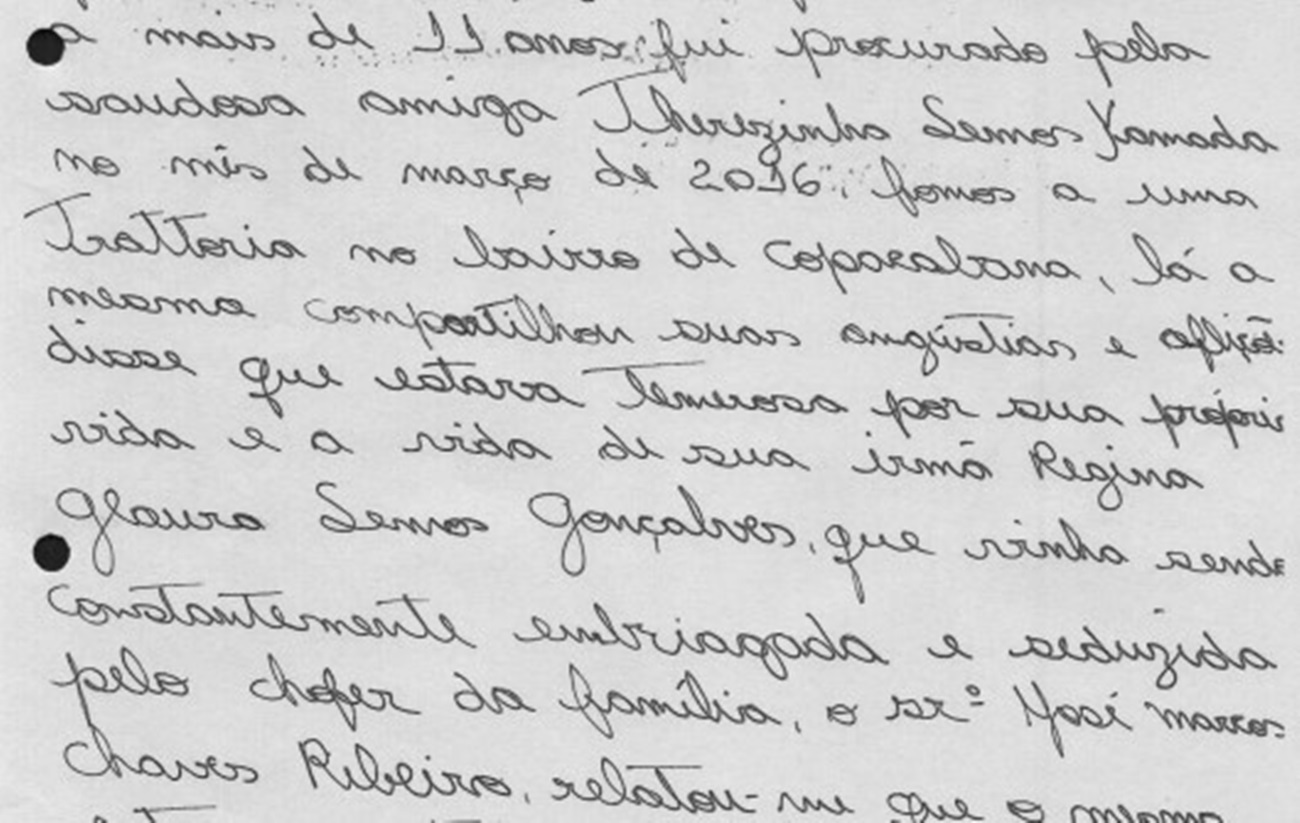 a mais de 11 anos, fui procurado pela
saudosa amiga Therezinha Lemos Yamada
no mês de março de 2016, fomos a uma
Trattoria no bairro de Copacabana, lá a
mesma compartilhou suas angústias e afliçõ
disse que estava temerosa por sua própri
vida e a vida de sua irmã Regina
Glaura Lemos Gonçalves, que vinha sendo
constantemente embriagada e seduzida
pelo chofer da família, o srº José Marcos
Chaves Ribeiro, relatou-me que o mesmo